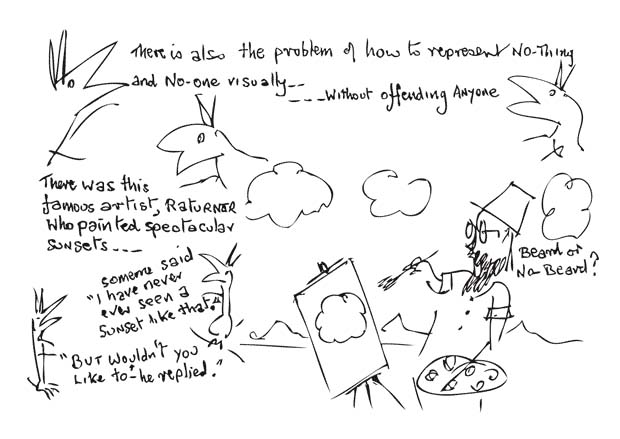 There is also the problem of how to represent No-Thing
and No-one visually--
----without offending Anyone
There was this
famous artist, RATURNER
who painted spectacular
sunsets----
someone said
"I have never
ever seen a
sunset like that."
"BUT wouldn't you
Like to"-he replied."
Beard or
No-Beard?